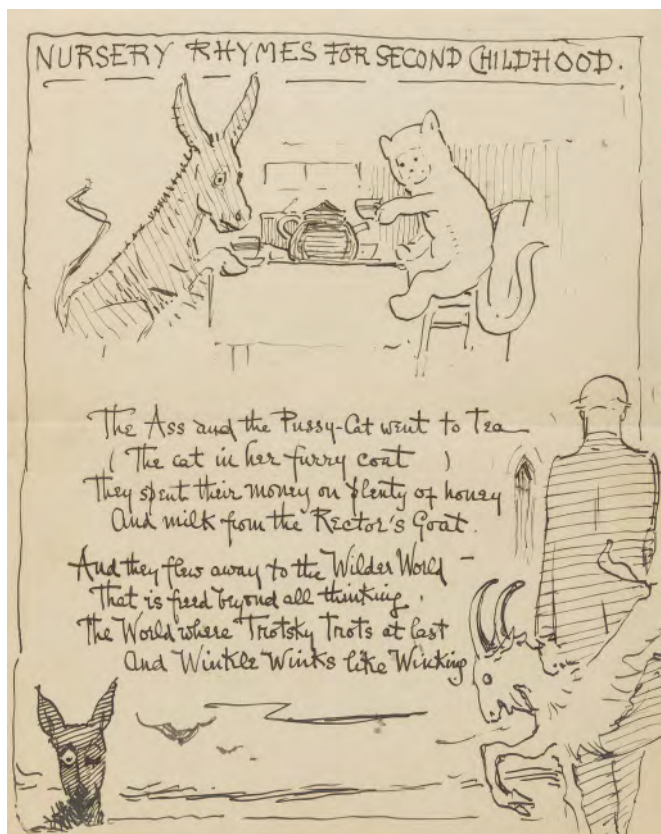 NURSERY RHYMES FOR SECOND CHILDHOOD.
The Ass and the Pussy-Cat went to Tea
( The cat in her furry coat )
They spent their money on plenty of honey
And milk from the Rector's Goat.
And they flew away to the Wilder World –
That is freed beyond all thinking.
The World where Trotsky Trots at last
And Winkle Winks like Winking